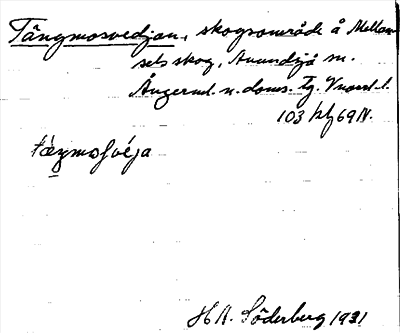 Tångmosvedjan, skogsområde å Mellan
sels skog, Anundsjö sn.
Ångerml. n. doms. tg. Vnorrl. l.
103 kf 69 N.
tæŋmosvéja
H A. Söderberg 1931